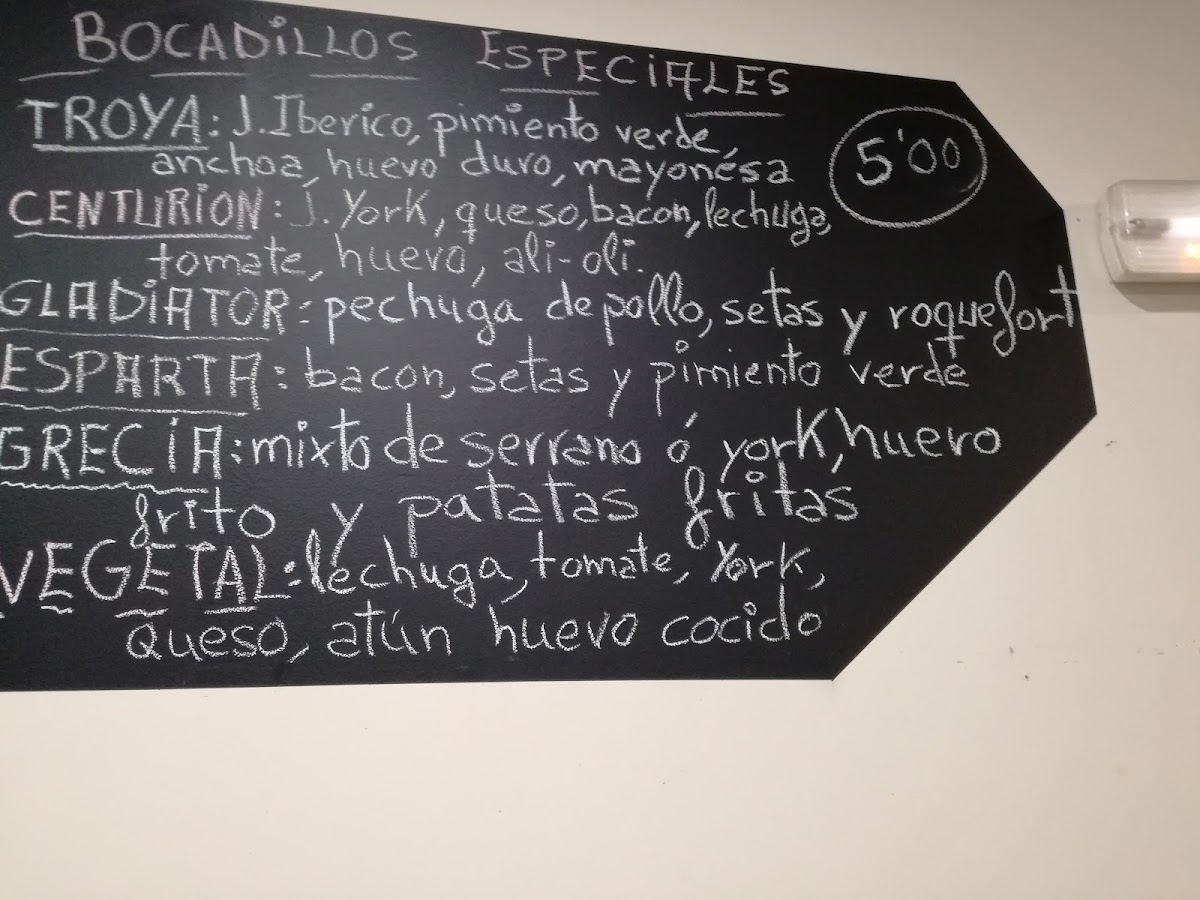 BOCADiLLOS ESPECiALES
TROYA: J. Iberico, pimiento verde,
anchoa, huevo duro, mayonésa
5'00
CENTURiON: J. York, queso, bacon, lechuga,
tomate, huevo, ali-oli.
GLADiATOR: pechuga de pollo, setas y roquefort
ESPARTA: bacon, setas y pimiento verde
GRECiA: mixto de serrano ó york, huevo
frito y patatas fritas
VEGETAL: lechuga, tomate, York,
queso, atún huevo cocido